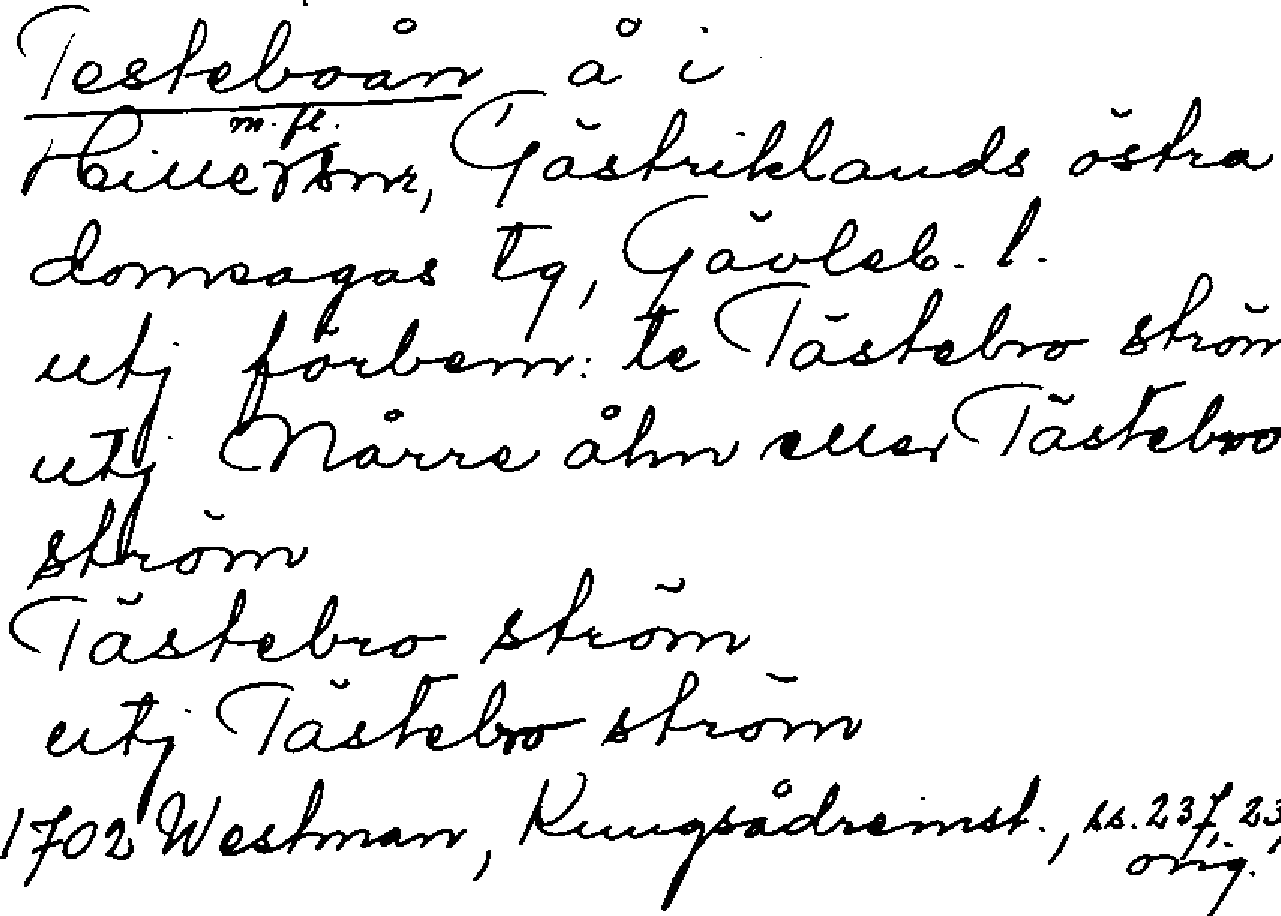 Testeboån å i
m. fl.
Hille snr, Gästriklands östra
domsagas tg, Gävleb. l.
utj förbem: te Tästebro ström
utj Nårre åhn eller Tästebro
ström
Tästebro ström
utj Tästebro ström
1702 Westman, Kungsådreinst., ss. 237, 23
orig.